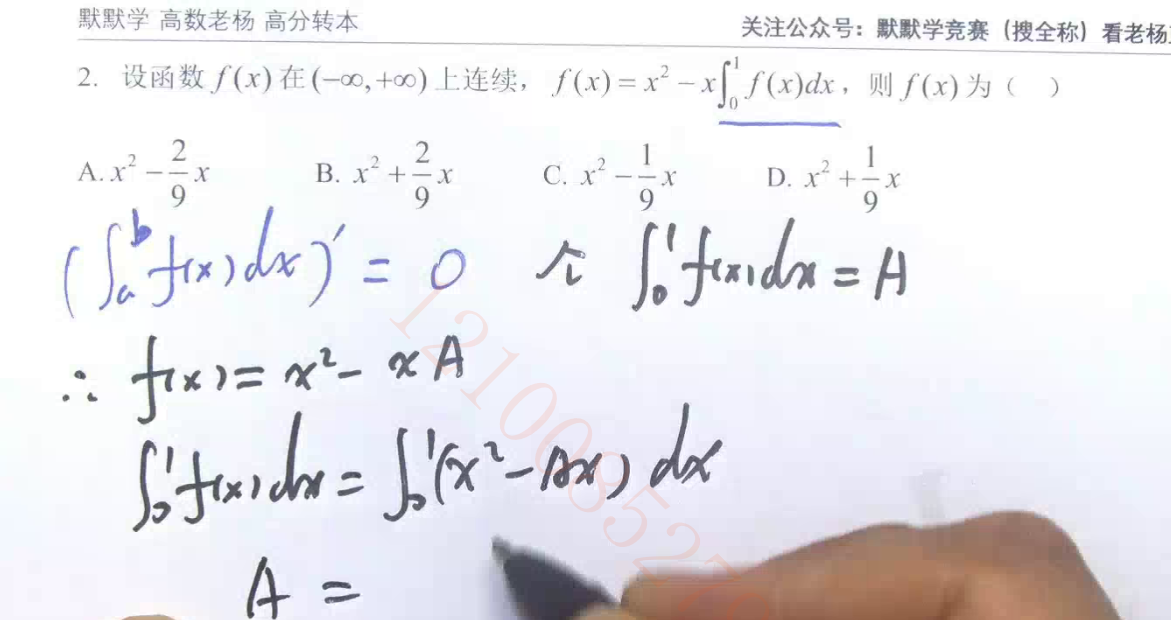 默默学 高数老杨 高分转本
关注公众号：默默学竞赛（搜全称）看老杨
2. 设函数 f(x) 在 (−∞,+∞) 上连续， f(x) = x² − x∫₀¹ f(x)dx ，则 f(x) 为（　）
A. x² − 2/9 x B. x² + 2/9 x C. x² − 1/9 x D. x² + 1/9 x
(∫ₐᵇ f(x)dx)′ = 0 令 ∫₀¹ f(x)dx = A
∴ f(x) = x² − xA
∫₀¹ f(x)dx = ∫₀¹ (x² − Ax) dx
A =